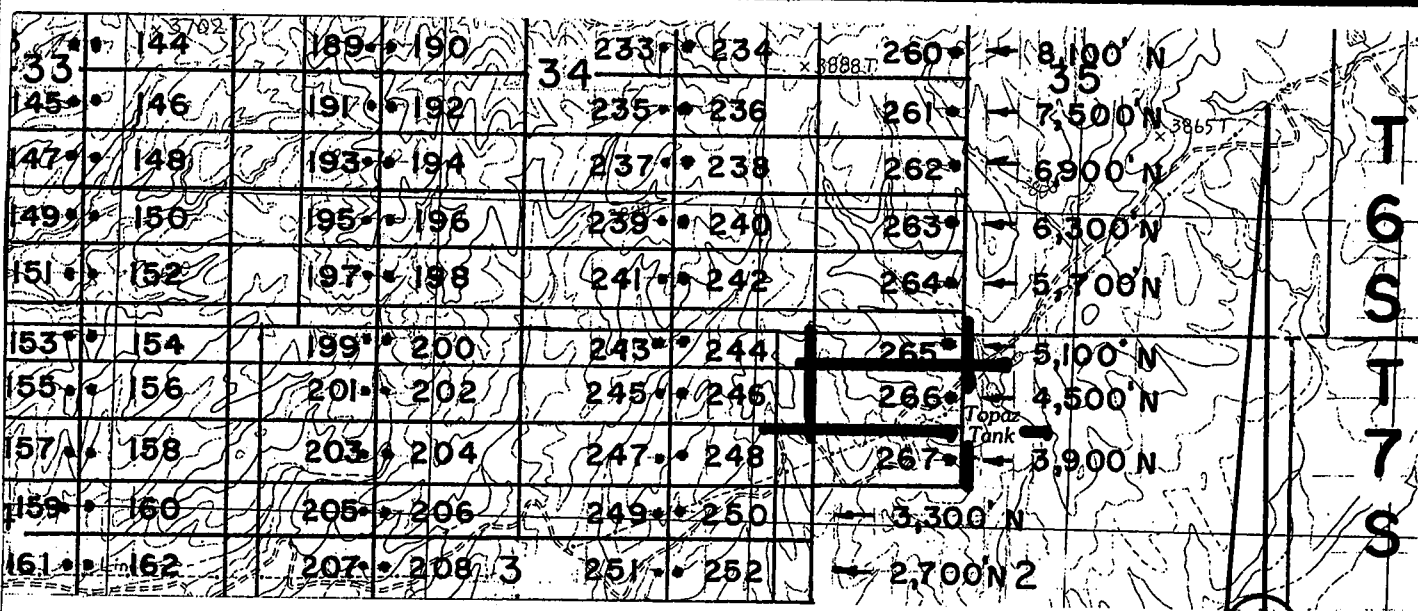 3702
144 189 190 233 234 260 8,100' N
33 34 3888T 35
145 146 191 192 235 236 261 7,500' N
3865T
T
147 148 193 194 237 238 262 6,900' N
6
149 150 195 196 239 240 263 6,300' N
S
151 152 197 198 241 242 264 5,700' N
153 154 199 200 243 244 265 5,100' N
T
155 156 201 202 245 246 266 4,500' N
Topaz
Tank
7
157 158 203 204 247 248 267 3,900' N
159 160 205 206 249 250 3,300' N
S
161 162 207 208 3 251 252 2,700' N 2